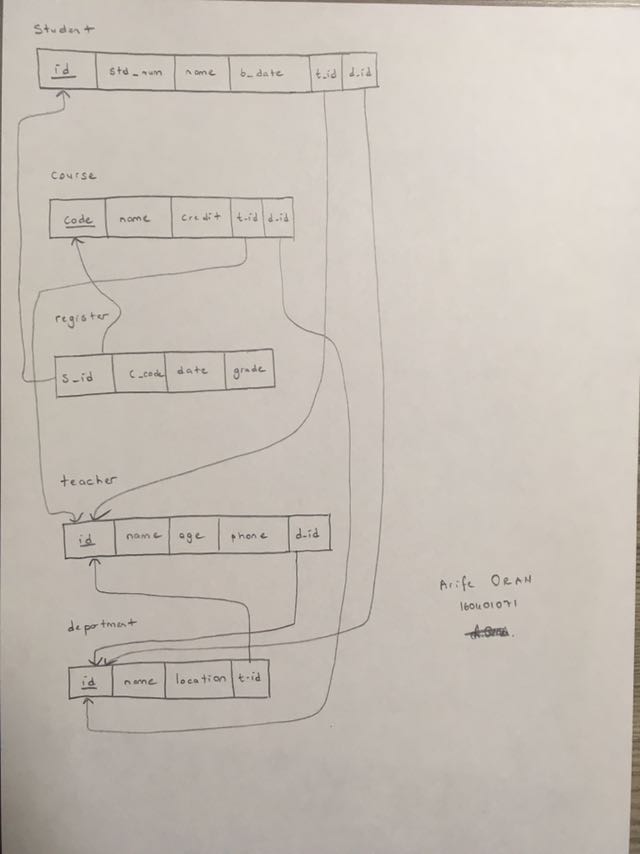 Student
id std_num name b_date t_id d_id
course
code name credit t-id d-id
register
S_id c_code date grade
teacher
id name age phone d-id
department
id name location t-id
Arife ORAN
160401071